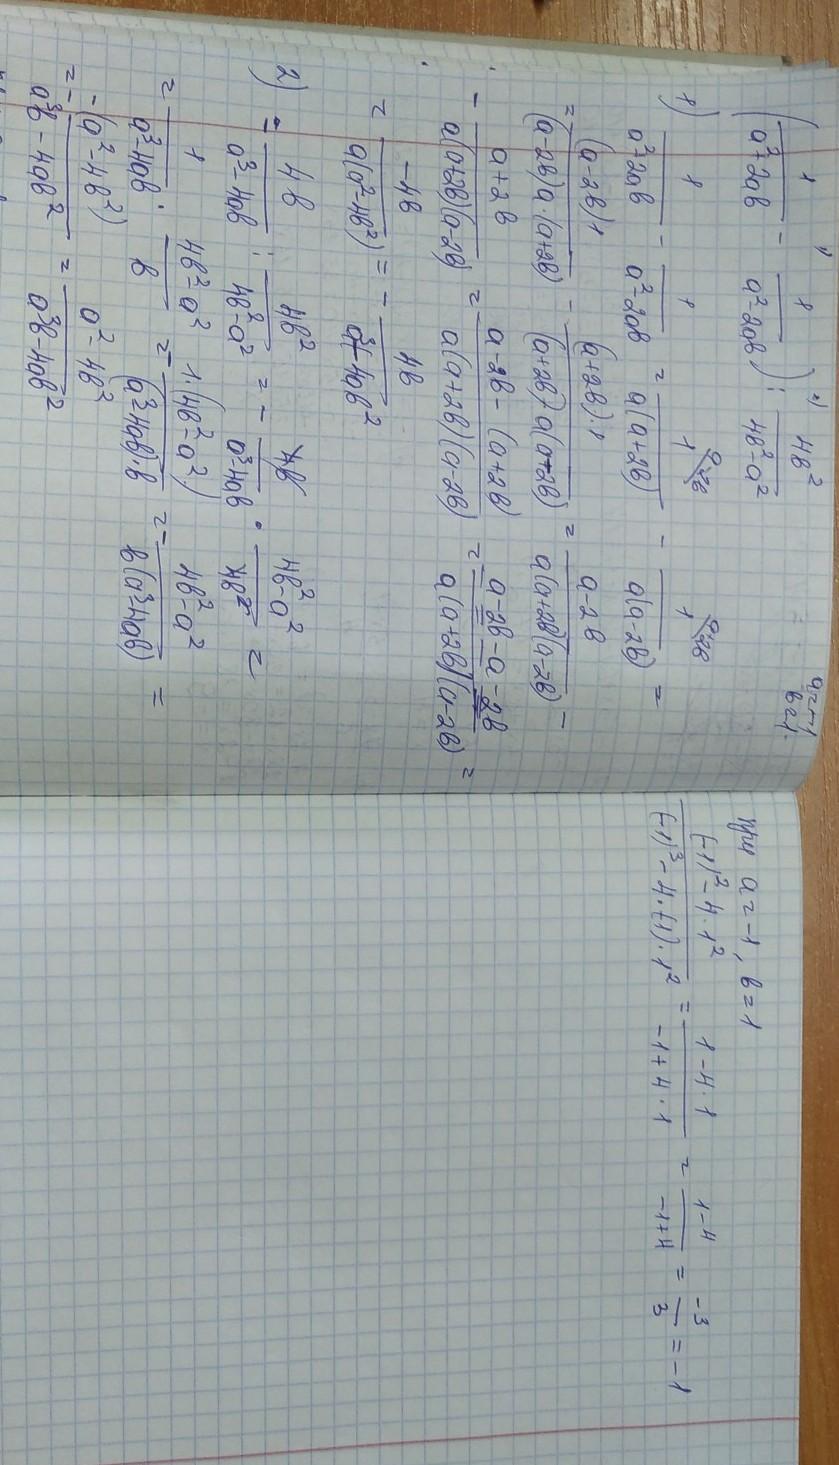 (1/(a²+2ab) - 1/(a²-2ab)) : 4b²/(4b²-a²)
a=-1
b=1.
1) 1/(a²+2ab) - 1/(a²-2ab) = 1/(a(a+2b)) - 1/(a(a-2b)) =
a-2b a+2b
= (a-2b)1/((a-2b)a·(a+2b)) - (a+2b)·1/((a+2b)·a(a-2b)) = (a-2b)/(a(a+2b)(a-2b)) -
- (a+2b)/(a(a+2b)(a-2b)) = (a-2b-(a+2b))/(a(a+2b)(a-2b)) = (a-2b-a-2b)/(a(a+2b)(a-2b)) =
= -4b/(a(a²-4b²)) = - 4b/(a³-4ab²)
2) = 4b/(a³-4ab) : 4b²/(4b²-a²) = - 4b/(a³-4ab) · (4b²-a²)/4b² =
= 1/(a³-4ab) · (4b²-a²)/b = - 1·(4b²-a²)/((a³-4ab)·b) = - (4b²-a²)/(b(a³-4ab)) =
= - -(a²-4b²)/(a³b-4ab²) = (a²-4b²)/(a³b-4ab²)
При a=-1, b=1
((-1)²-4·1²)/((-1)³-4·(-1)·1²) = (1-4·1)/(-1+4·1) = (1-4)/(-1+4) = -3/3 = -1